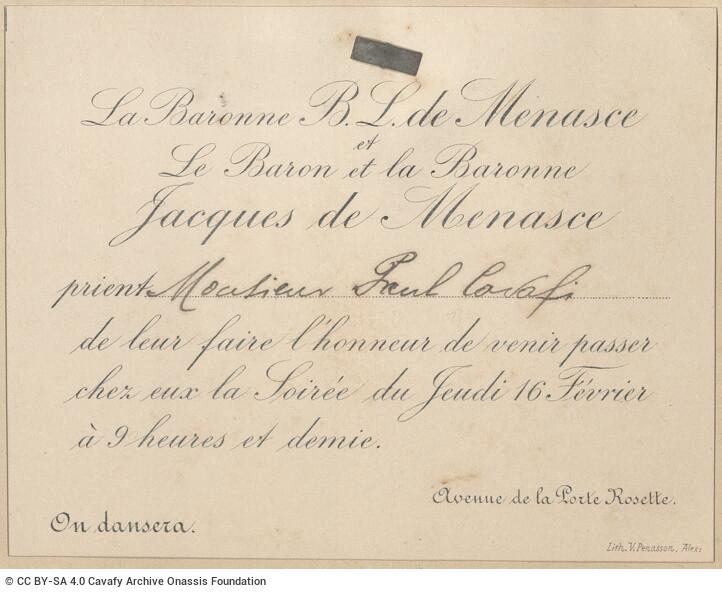 La Baronne B. L. de Menasce
et
Le Baron et la Baronne
Jacques de Menasce
prient Monsieur Paul Cavafi
de leur faire l'honneur de venir passer
chez eux la Soirée du Jeudi 16 Février
à 9 heures et demie.
Avenue de la Porte Rosette.
On dansera.
Lith. V. Penasson, Alex:
© CC BY-SA 4.0 Cavafy Archive Onassis Foundation